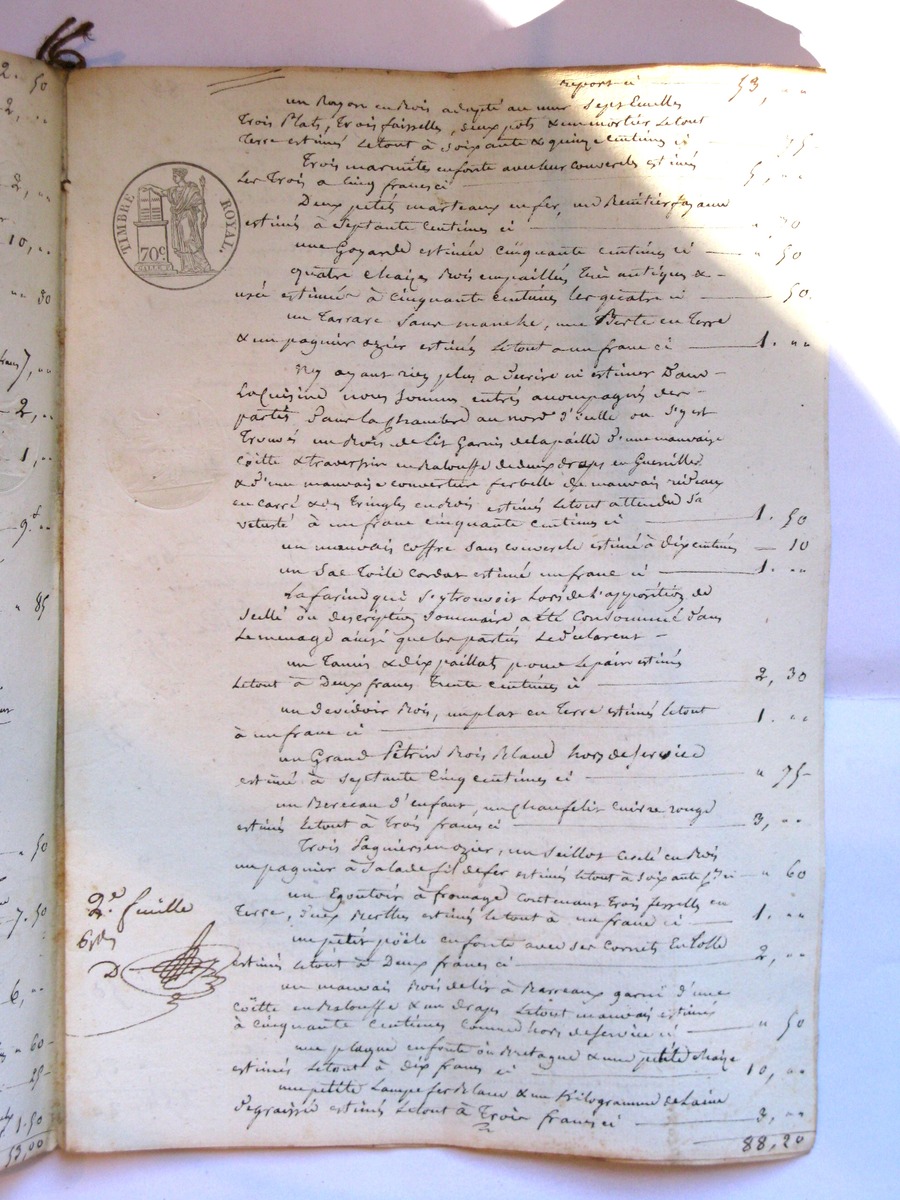 report ci 53, "
un Rayon en Bois adapté au mur Sept Ecuelles
Trois Plats, Trois faisselles, deux pots & un mortier Letout
Terre estimés Letout à Soixante & quinze Centimes ci 75
Trois marmites en fonte avec leur couvercles estimés
Les Trois a Cinq francs ci 5, "
Deux petits marteaux en fer, un Bénitier fayance
estimés à Septante Centimes ci " 70
une Goyarde estimée Cinquante Centimes ci " 50
quatre chaizes Bois empaillées Très antiques &
usée estimées à Cinquante Centimes les quatre ci 50
un Tarrare Sans manche, une Berte en Terre
& un pagnier ozier estimés Letout a un franc ci 1. "
N'y ayant riez plus a décrire ni estimer Dans
La Cuisine nous Sommes entrés accompagnés des
partés, Dans la Chambre au nord d'icelle ou S'y est
Trouvés un Bois de Lit Garnis de la paille D'une mauvaise
Coîtte & traversin en Balouffe de deux draps en Guenilles
& d'une mauvaise couverture de mauvais rideaux
en carré & des Tringles en Bois estimés Letout attendu Sa
vetusté à un franc cinquante Centimes ci 1. 50
un mauvais coffre Sans couvercle estimé à Dix centimes 10
un Sac Toile Cordat estimé un franc ci 1. "
La farine qui S'y trouvoit Lors de L'apposition de
Scellé ou description Sommaire a été Consommée Dans
Le menage ainsi que les parties Le déclarent
un Tamis & dix paillats pour Le pain estimés
Letout à Deux francs Trente Centimes ci 2, 30
un devidoir Bois, un plat en Terre estimés Letout
à un franc ci 1. "
un Grand Pétrin Bois Blanc hors de Service
estimé à Septante Cinq Centimes ci " 75
un Berceau d'enfant, un chaufelit cuivre rouge
estimés Letout à Trois francs ci 3, "
Trois Pagniers en ozier, un Seillot en Bois
un pagnier à Salade fil de fer estimés Letout à Soixante ci " 60
un Egoutoir à fromage contenant Trois fesselles en
Terre, deux Berthes estimés Letout à un franc ci 1. "
un petit poële en fonte avec ses Cornets En Tolle
estimés Letout à Deux francs ci 2, "
un mauvais Bois de lit à Barreaux garni d'une
Coîtte en Balouffe & un draps Letout mauvais estimés
à Cinquante Centimes comme hors de Service ci " 50
une plaque en fonte ou Bretagne & une petite chaize
estimés Letout à Dix francs ci 10, "
une petite Lampe fer blanc & un Kilogramme de Laine
Degraissée estimés Letout à Trois francs ci 3, "
88,20
TIMBRE ROYAL.
70c
2e feuille
2. 50
2,
2, "
10, "
" 80
7, "
2, "
1, "
9. "
" 85
" 50
7. 50
6, "
" 60
1.50
53,00